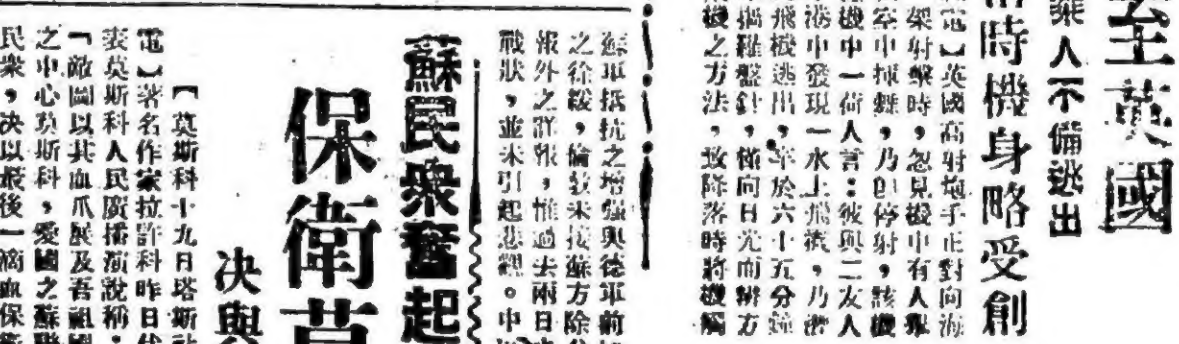 至英國
乘人不備逃出
時機身略受創
電】英國高射炮手正對向海
架射擊時,忽見機中有人舉
空中揮舞,乃即停射,該機
機中一荷人言:彼與二友人
港中發現一水上飛機,乃潛
飛機逃出,卒於六十五分鐘
羅盤針,僅向日光而辨方
機之方法,致降落時將機觸
蘇軍抵抗之增強與德軍前
之徐緩,倫敦未接蘇方除公
報外之詳報,惟過去兩日
戰狀,並未引起悲觀。中
蘇民衆奮起
保衛莫
決與
【莫斯科十九日塔斯社
電】著名作家拉許科昨日代
表莫斯科人民廣播演說稱:
「敵圖以其血爪展及吾祖國
之中心莫斯科,愛國之蘇聯
民衆,決以最後一滴血保衛